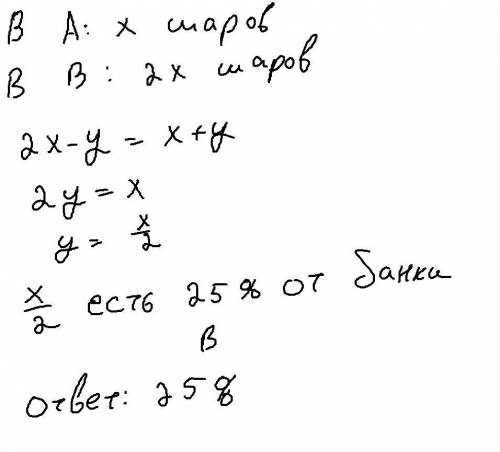 В А: x шаров
В В: 2x шаров
2x-y = x+y
2y = x
y = x/2
x/2 есть 25% от банки
В
ответ: 25%